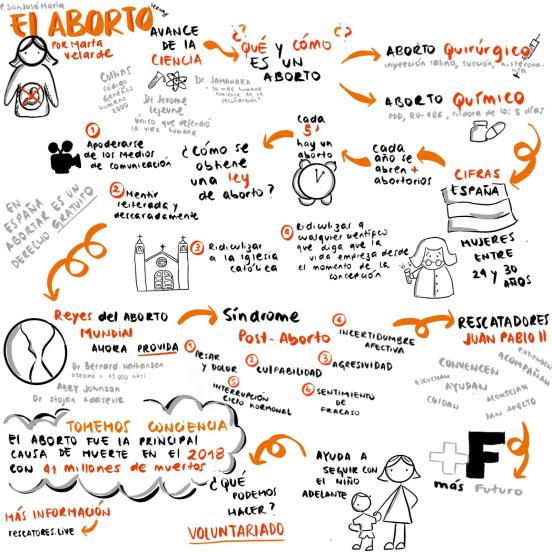 P. San José María
El ABORTO
POR Marta
Velarde
AVANCE
DE LA
CIENCIA
Collins
código
Genético
humano
2000
Dr Jerome
Lejeune
único que defendió
la vida humana
¿QUÉ Y CÓMO?
ES UN
ABORTO
ABORTO Quirúrgico
inyección salina, succión,
ABORTO QUÍMICO
RU-486, píldora de los 5 días
CIFRAS
ESPAÑA
MUJERES
ENTRE
24 y 30
AÑOS
cada
año se
abren +
abortorios
cada
5'
hay un
aborto
¿Cómo se
obtiene
una ley
de aborto?
1 Apoderarse
de los Medios
de comunicación
2 Mentir
reiterada y
descaradamente
3 Ridiculizar
a la iglesia
católica
4 Ridiculizar a
cualquier científico
que diga que la
vida empieza desde
el momento de la
concepción
EN
ESPAÑA
ABORTAR ES UN
DERECHO GRATUITO
Reyes del ABORTO
MUNDIAL
AHORA PROVIDA
Dr. Bernard Nathanson
asesino a 75.000 niños
Abby Johnson
Dr Stojan Adasevic
Síndrome
Post-Aborto
1 PESAR
Y DOLOR
2 CULPABILIDAD
3 AGRESIVIDAD
4 INCERTIDUMBRE
AFECTIVA
5 INTERRUPCIÓN
CICLO HORMONAL
6 SENTIMIENTO
DE
FRACASO
RESCATADORES
JUAN PABLO II
ENTIENDEN
ACOMPAÑAN
CONVENCEN
ESCUCHAN
AYUDAN
ACONSEJAN
CUIDAN
DAN AFECTO
+F
más Futuro
AYUDA A
SEGUIR CON
EL NIÑO
ADELANTE
¿QUÉ
PODEMOS
HACER?
VOLUNTARIADO
TOMEMOS CONCIENCIA
El ABORTO FUE LA PRINCIPAL
CAUSA DE MUERTE EN EL 2018
CON 41 millones de muertos
MÁS INFORMACIÓN
RESCATORES.LIVE